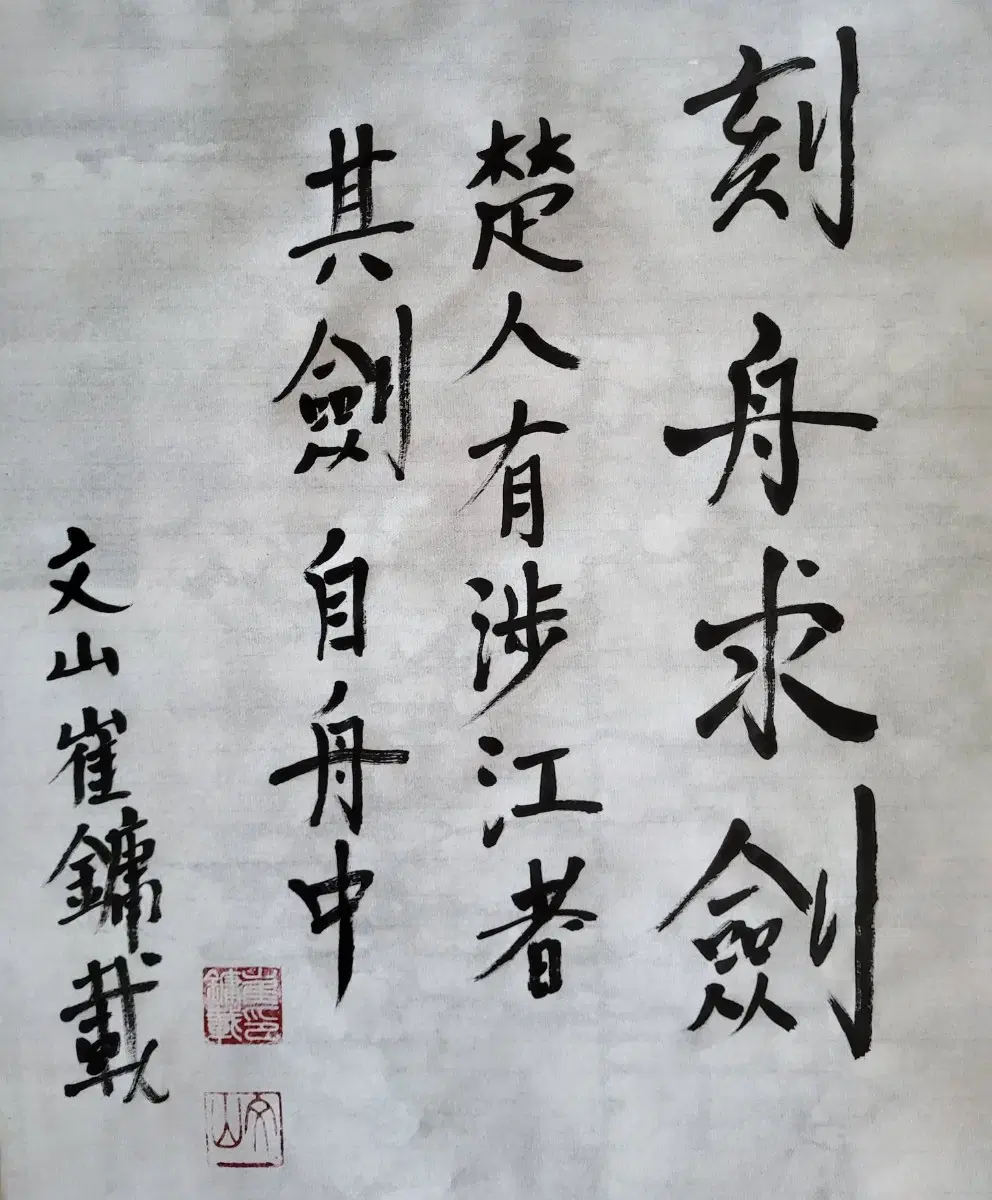 刻舟求劍
楚人有涉江者
其劍自舟中
文山崔鏞載
崔印鏞載
文山